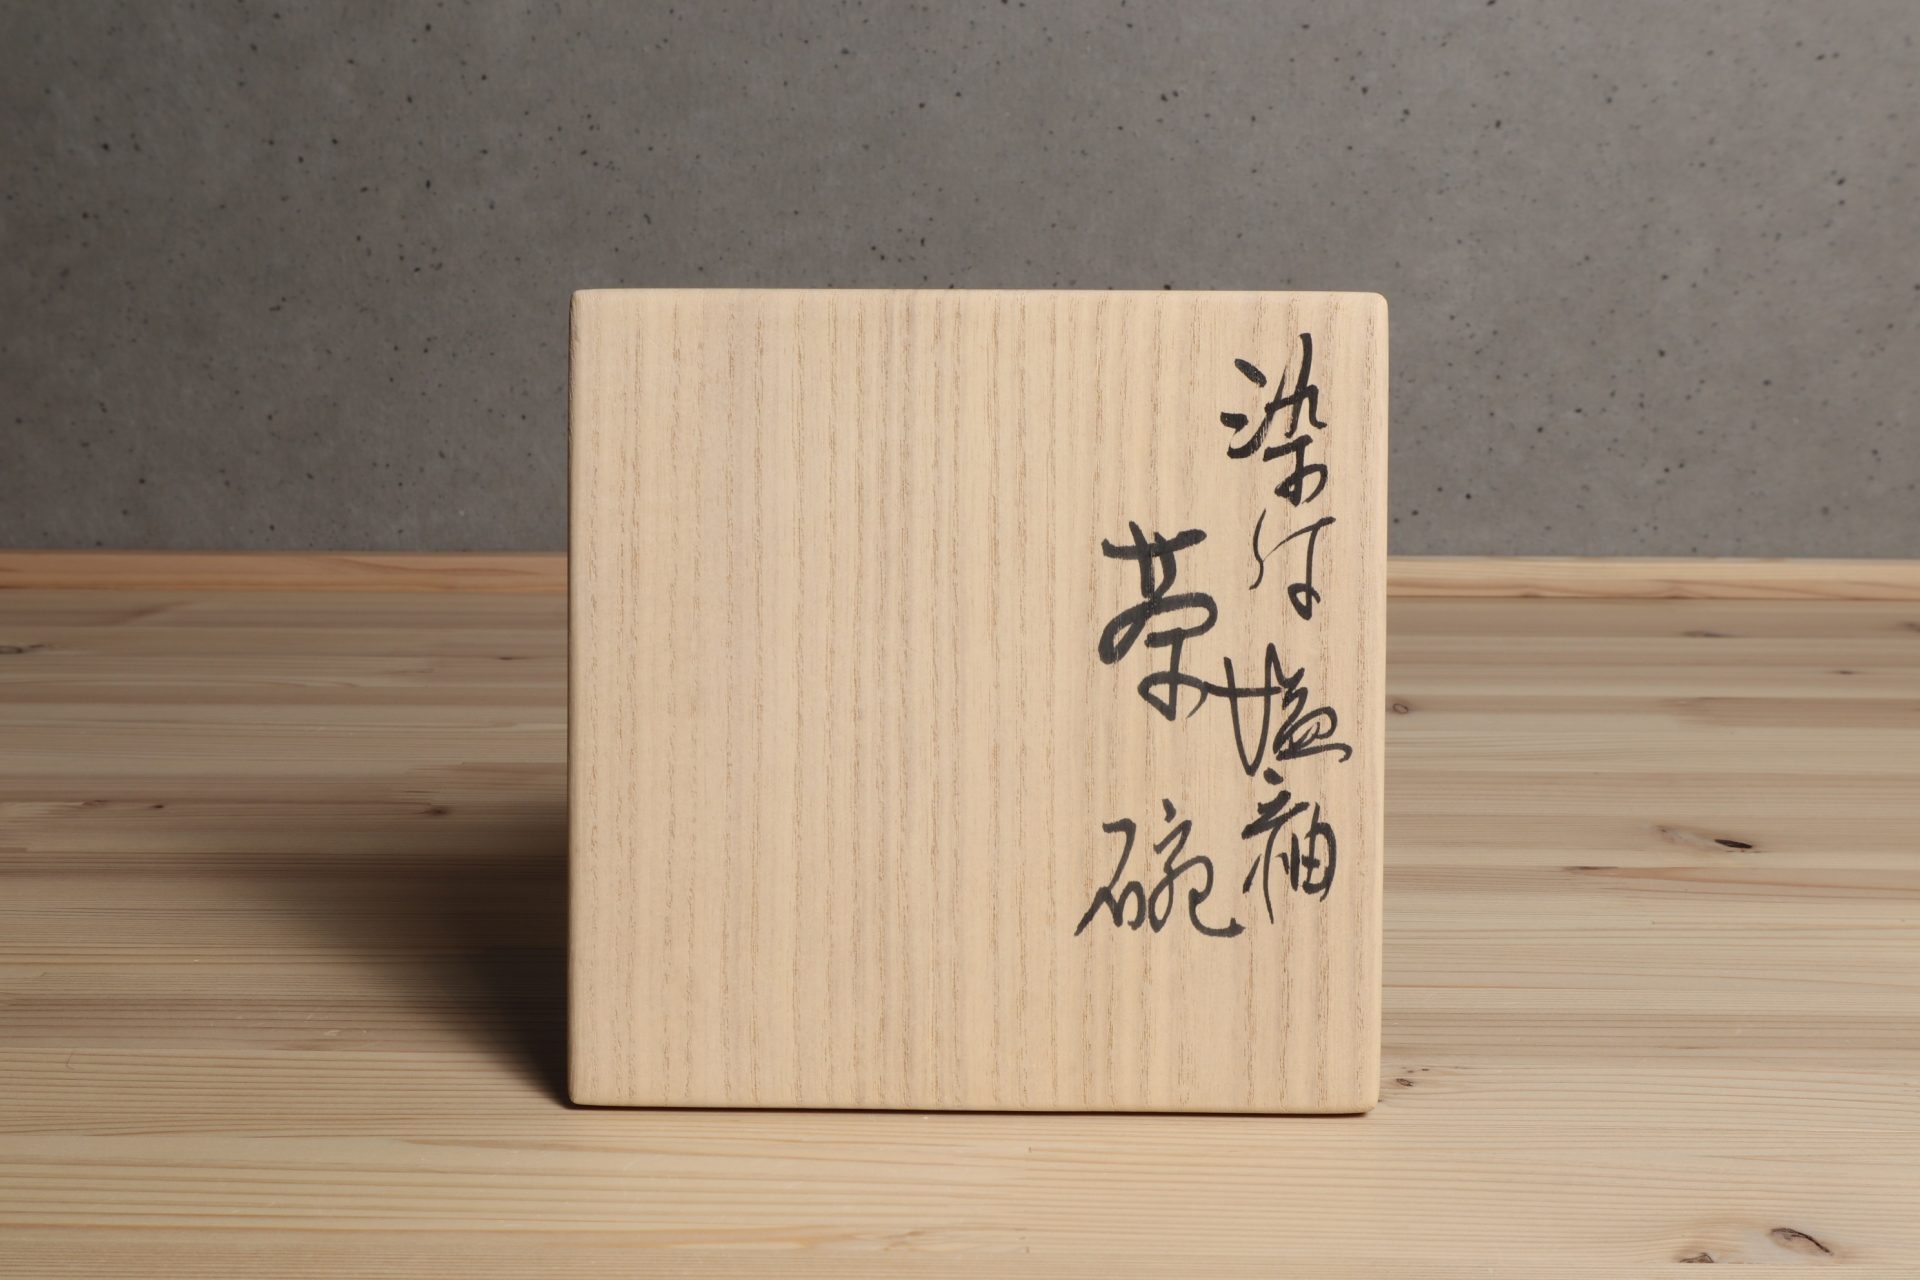 染付塩釉
茶碗